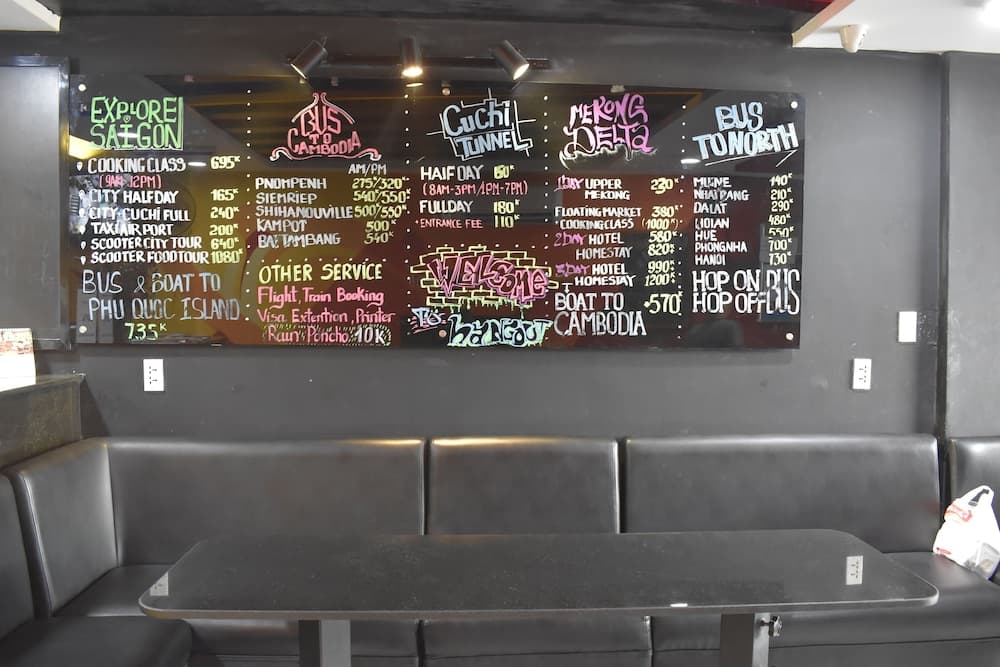 EXPLORE
SAIGON
COOKING CLASS 695K
(9AM-12PM)
CITY HALFDAY 165K
CITY-CUCHI FULL 240K
TAXI AIRPORT 200K
SCOOTER CITY TOUR 640K
SCOOTER FOOD TOUR 1080K
BUS & BOAT TO
PHU QUOC ISLAND
735K
BUS
TO
CAMBODIA
AM/PM
PNOMPENH 275/320K
SIEMRIEP 540/550K
SHIHANOUVILLE 500/550K
KAMPOT 500K
BATTAMBANG 540K
OTHER SERVICE
Flight, Train Booking
Visa Extention, Printer
Rain Poncho 10K
CuChi
TUNNEL
HALF DAY
(8AM-3PM/1PM-7PM)
FULLDAY 180K
ENTRANCE FEE 110K
WELCOME
To
HANGOUT
MEKONG
DELTA
1DAY UPPER 230K
MEKONG
FLOATING MARKET 380K
(COOKING CLASS) (1000K)
2DAY HOTEL 580K
HOMESTAY 820K
3DAY HOTEL 990K
HOMESTAY 1200K
BOAT TO 570K
CAMBODIA
BUS
TO NORTH
MUINE 140K
NHATRANG 210K
DALAT 290K
HOIAN 480K
HUE 550K
PHONGNHA 700K
HANOI 730K
HOP ON BUS
HOP OFF BUS